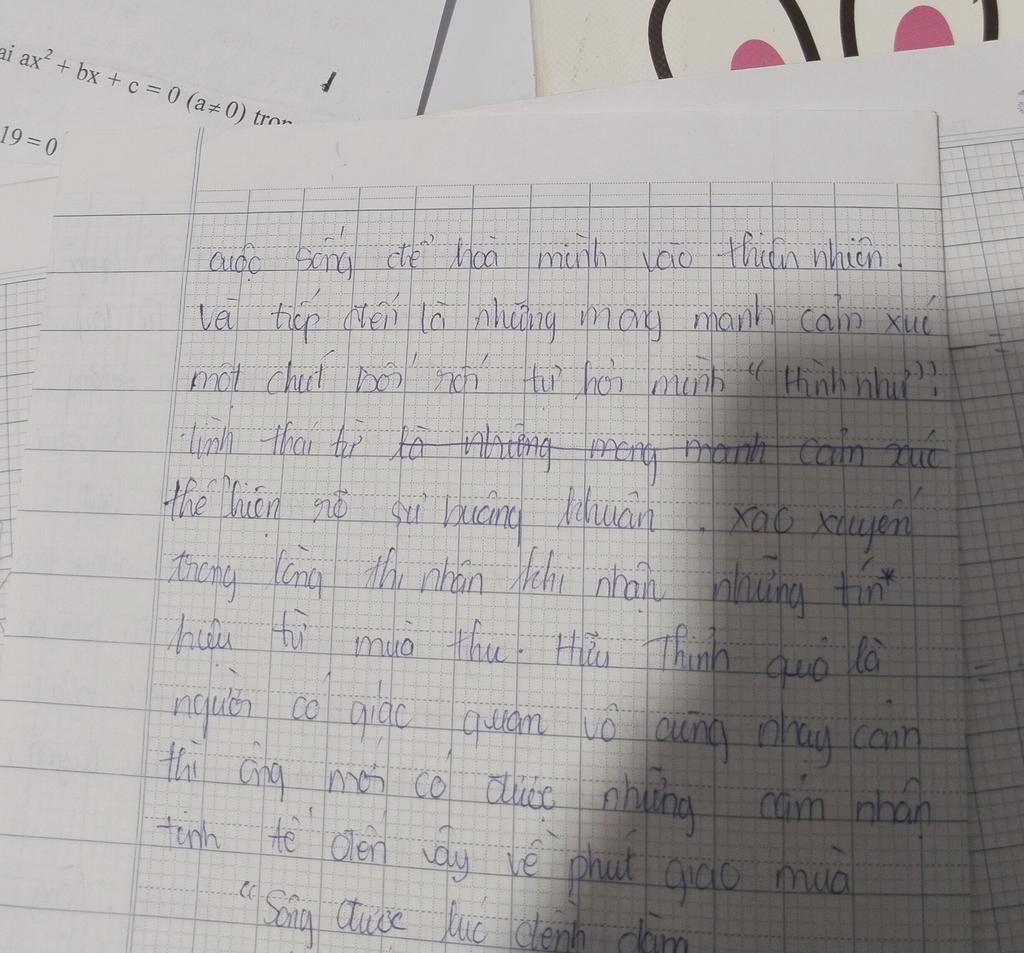 ai ax² + bx + c = 0 (a≠0) tron
19 = 0
cuộc sống để hoà mình vào thiên nhiên.
Và tiếp đến là những mong manh cảm xúc
một chút bối rối tự hỏi mình “Hình như”:
tình thái từ là những mong manh cảm xúc
thể hiện rõ sự buâng khuân, xao xuyến
trong lòng thi nhân khi nhận những tín*
hiệu từ mùa thu. Hữu Thỉnh quả là
người có giác quan vô cùng nhạy cảm
thì ông mới có được những cảm nhận
tinh tế đến vậy về phút giao mùa
“Sông được lúc dềnh dàng